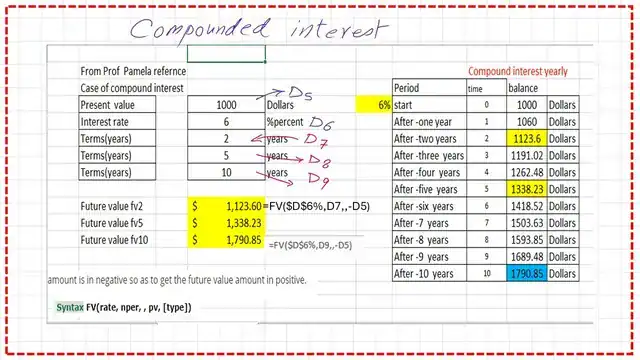 Compounded interest
From Prof Pamela refernce
Case of compound interest
Present value 1000 Dollars D5
Interest rate 6 %percent D6
Terms(years) 2 years D7
Terms(years) 5 years D8
Terms(years) 10 years D9
Future value fv2 $ 1,123.60 =FV($D$6%,D7,,-D5)
Future value fv5 $ 1,338.23
Future value fv10 $ 1,790.85 =FV($D$6%,D9,,-D5)
amount is in negative so as to get the future value amount in positive.
Syntax FV(rate, nper, , pv, [type])
Compound interest yearly
Period time balance
6% start 0 1000 Dollars
After -one year 1 1060 Dollars
After -two years 2 1123.6 Dollars
After -three years 3 1191.02 Dollars
After -four years 4 1262.48 Dollars
After -five years 5 1338.23 Dollars
After -six years 6 1418.52 Dollars
After -7 years 7 1503.63 Dollars
After -8 years 8 1593.85 Dollars
After -9 years 9 1689.48 Dollars
After -10 years 10 1790.85 Dollars